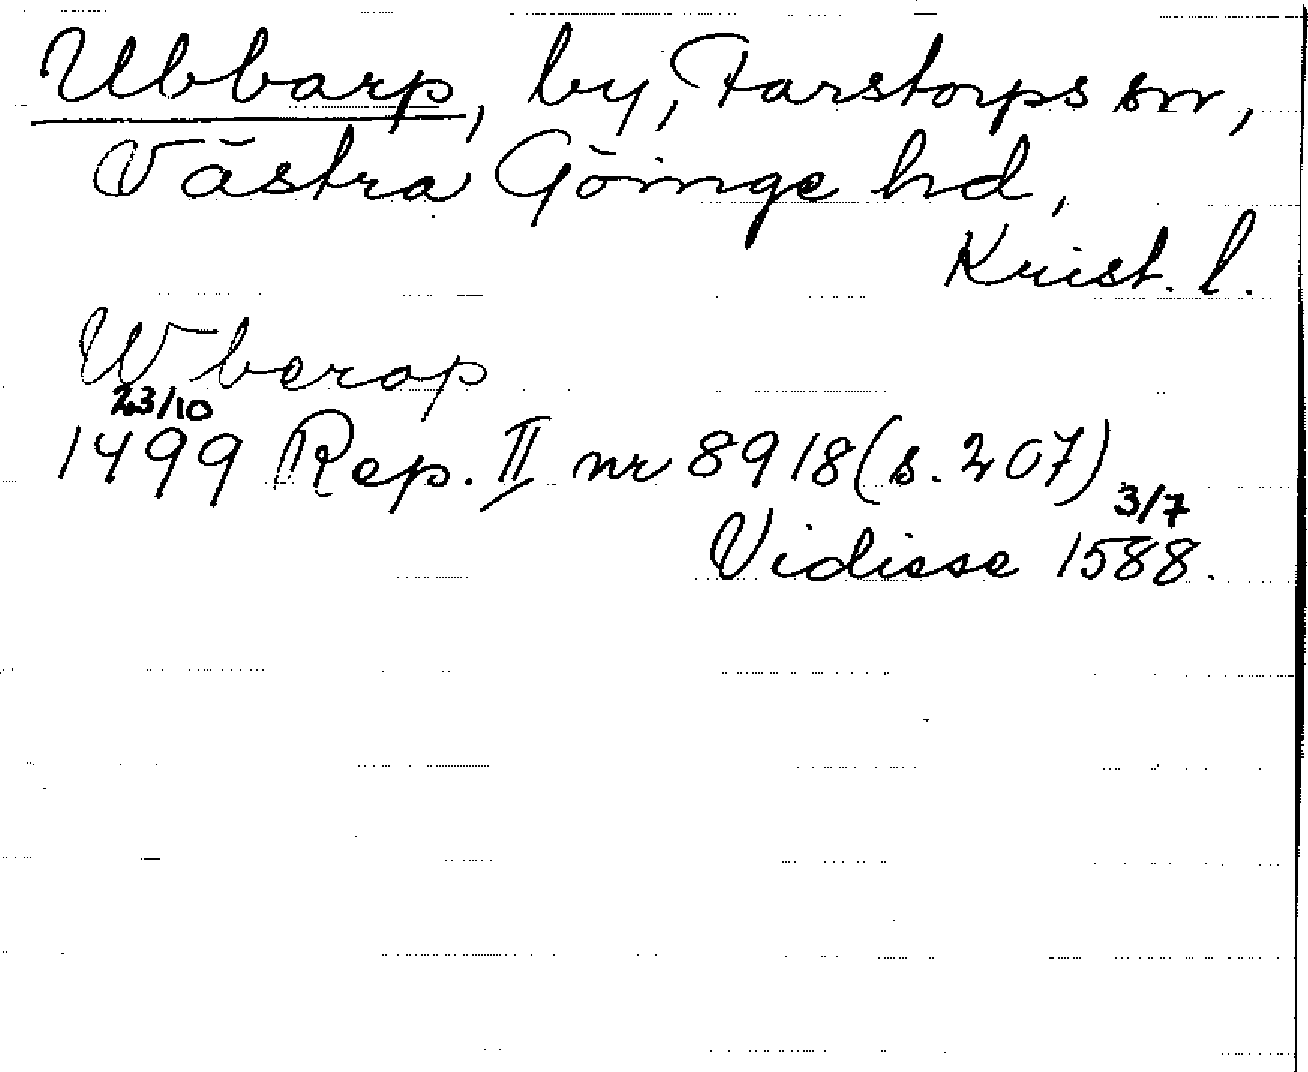 Ubbarp, by, Farstorps sn,
Västra Göinge hd,
Krist. l.
Wberop
23/10
1499 Rep. II nr 8918 (s. 207)
3/7
Vidisse 1588.